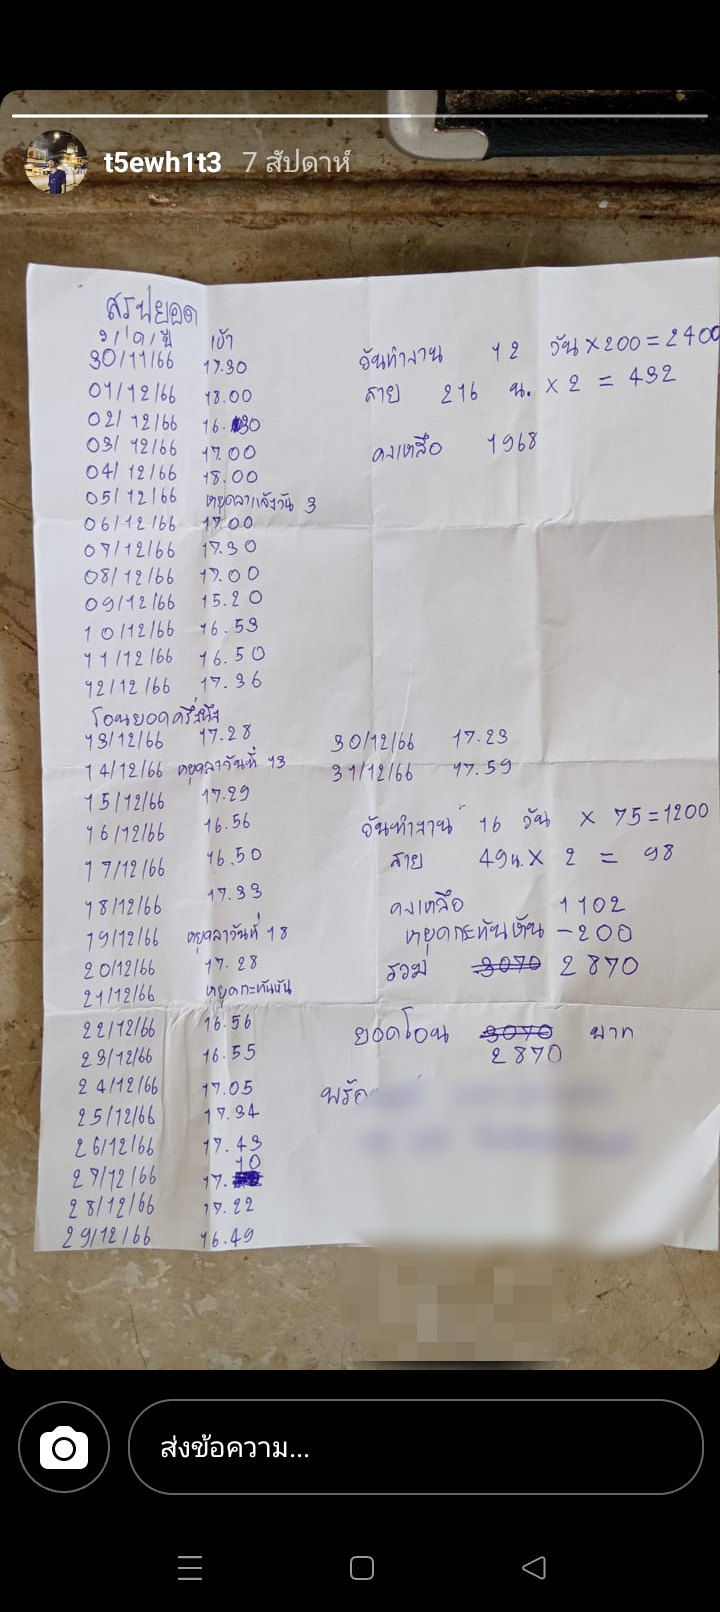 t5ewh1t3 7 สัปดาห์
สรุปยอด
ว/ด/ปี เข้า
30/11/66 17.30
01/12/66 18.00
02/12/66 16.30
03/12/66 17.00
04/12/66 18.00
05/12/66 หยุดลาแล้ววัน 3
06/12/66 17.00
07/12/66 17.30
08/12/66 17.00
09/12/66 15.20
10/12/66 16.53
11/12/66 16.50
12/12/66 17.36
โอนยอดครึ่งนึง
13/12/66 17.28
14/12/66 หยุดลาวันที่ 13
15/12/66 17.29
16/12/66 16.56
17/12/66 16.50
18/12/66 17.33
19/12/66 หยุดลาวันที่ 18
20/12/66 17.28
21/12/66 หยุดกะทันหัน
22/12/66 16.56
23/12/66 16.55
24/12/66 17.05
25/12/66 17.34
26/12/66 17.43
27/12/66 17.10
28/12/66 17.22
29/12/66 16.49
วันทำงาน 12 วัน × 200 = 2400
สาย 216 น. × 2 = 432
คงเหลือ 1968
30/12/66 17.23
31/12/66 17.59
วันทำงาน 16 วัน × 75 = 1200
สาย 49น. × 2 = 98
คงเหลือ 1102
หยุดกะทันหัน -200
รวม 3070 2870
ยอดโอน 3070 บาท
2870
ส่งข้อความ...